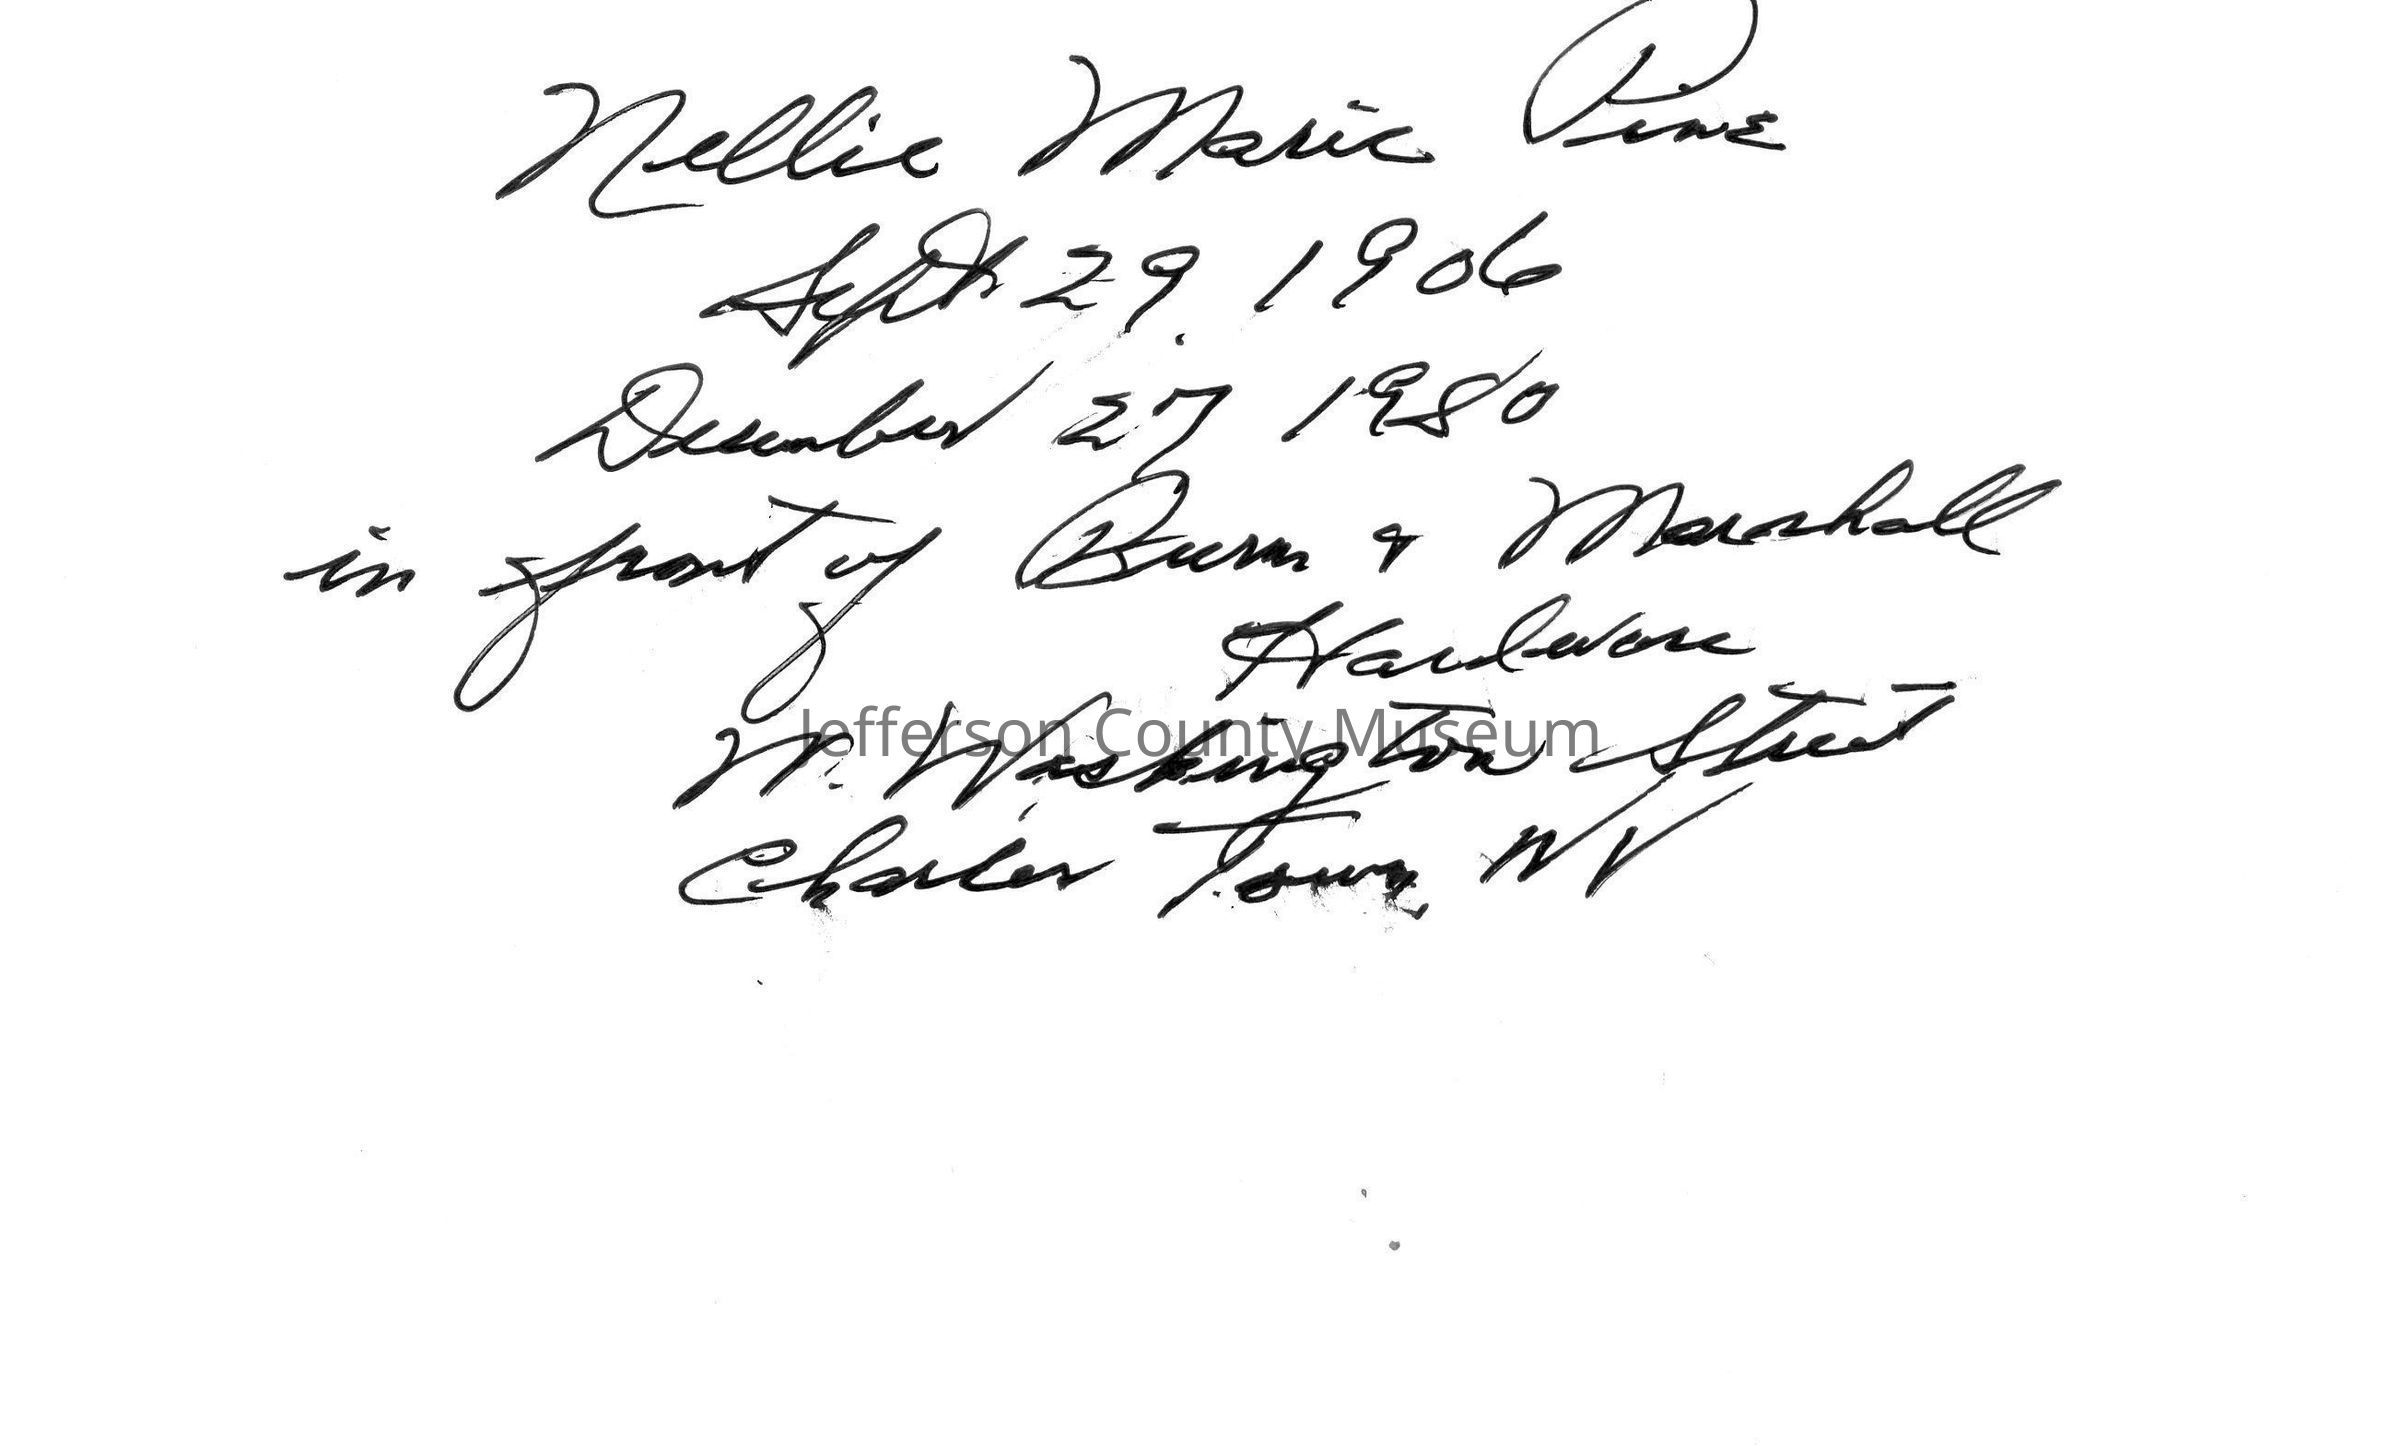 Nellie Marie Pine
Sept. 29, 1906
December 27, 1980
in front of Burns & Marshall
Hardware
W. Washington Street
Jefferson County Museum
Charles Town, WV